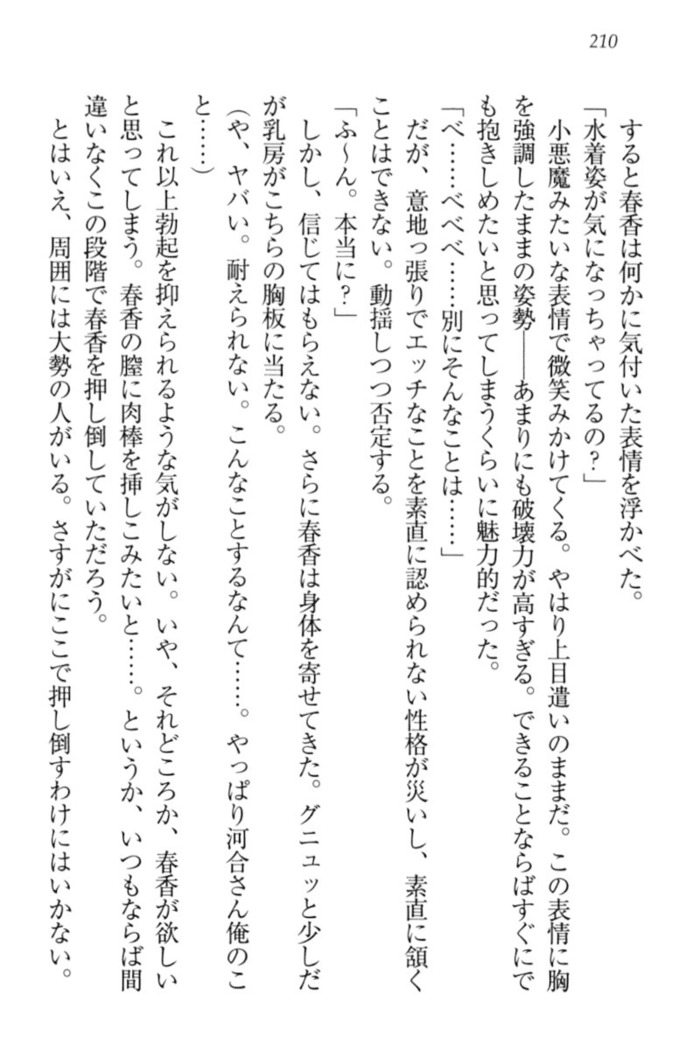 210
すると春香は何かに気付いた表情を浮かべた。
「水着姿が気になっちゃってるの?」
小悪魔みたいな表情で微笑みかけてくる。やはり上目遣いのままだ。この表情に胸
を強調したままの姿勢――あまりにも破壊力が高すぎる。できることならばすぐにで
も抱きしめたいと思ってしまうくらいに魅力的だった。
「べ……べべべ……別にそんなことは……」
だが、意地っ張りでエッチなことを素直に認められない性格が災いし、素直に頷く
ことはできない。動揺しつつ否定する。
「ふ〜ん。本当に?」
しかし、信じてはもらえない。さらに春香は身体を寄せてきた。グニュッと少しだ
が乳房がこちらの胸板に当たる。
(や、ヤバい。耐えられない。こんなことするなんて……。やっぱり河合さん俺のこ
と……)
これ以上勃起を抑えられるような気がしない。いや、それどころか、春香が欲しい
と思ってしまう。春香の膣に肉棒を挿しこみたいと……。というか、いつもならば間
違いなくこの段階で春香を押し倒していただろう。
とはいえ、周囲には大勢の人がいる。さすがにここで押し倒すわけにはいかない。